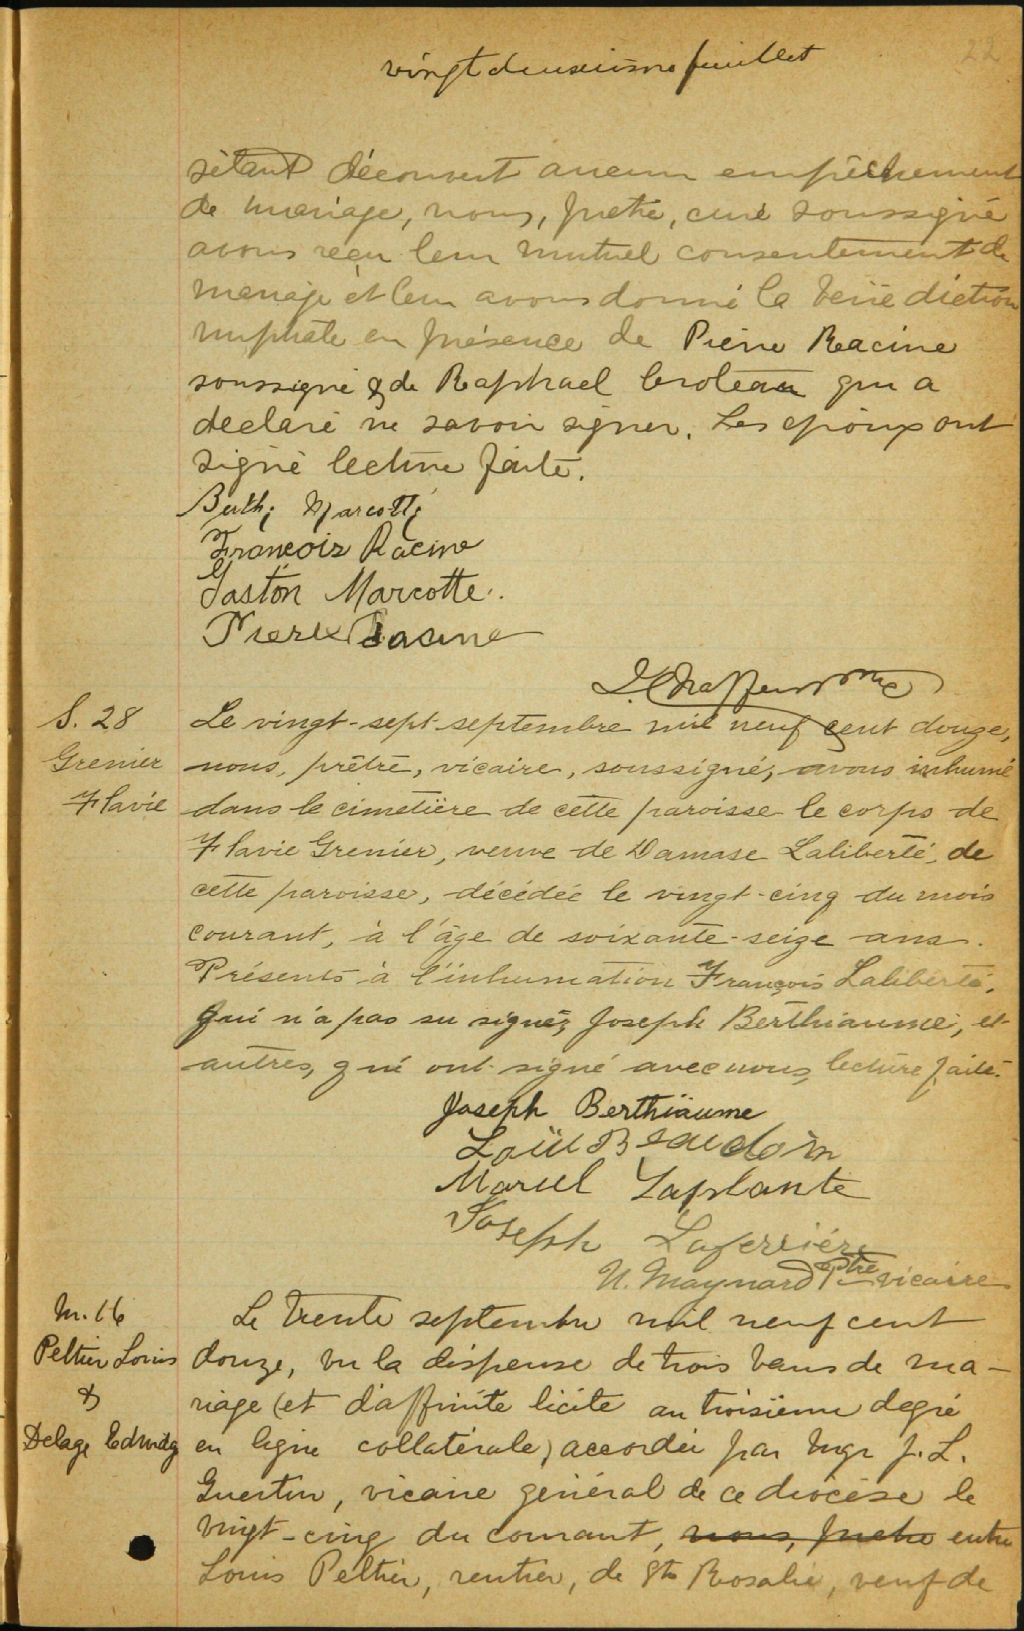 vingt deuxième feuillet
22
s'étant découvert aucun empêchement
de mariage, nous, prêtre, curé soussigné
avons reçu leur mutuel consentement de
mariage et leur avons donné la bénédiction
nuptiale en présence de Pierre Racine
soussigné & de Raphael Croteau qui a
déclaré ne savoir signer. Les époux ont
signé lecture faite.
Marcotte
François Racine
Gaston Marcotte.
Pierre Racine
ptre
S. 28
Grenier
Flavie
Le vingt-sept septembre mil neuf cent douze,
nous, prêtre, vicaire, soussigné, avons inhumé
dans le cimetière de cette paroisse le corps de
Flavie Grenier, veuve de Damase Laliberté, de
cette paroisse, décédée le vingt-cinq du mois
courant, à l'âge de soixante-seize ans.
Présents à l'inhumation François Laliberté,
qui n'a pas su signer, Joseph Berthiaume, et
autres, qui ont signé avec nous, lecture faite.
Joseph Berthiaume
Louis Beaudoin
Marcel Laplante
Joseph Laferrière
U. Maynard Ptre vicaire
M. 16
Peltier Louis
&
Delage Edwidg
Le trente septembre mil neuf cent
douze, vu la dispense de trois bans de ma-
riage (et d'affinité licite au troisième degré
en ligne collatérale) accordée par Mgr J. L.
Guertin, vicaire général de ce diocèse le
vingt-cinq du courant, nous, prêtre entre
Louis Peltier, rentier, de Ste Rosalie, veuf de